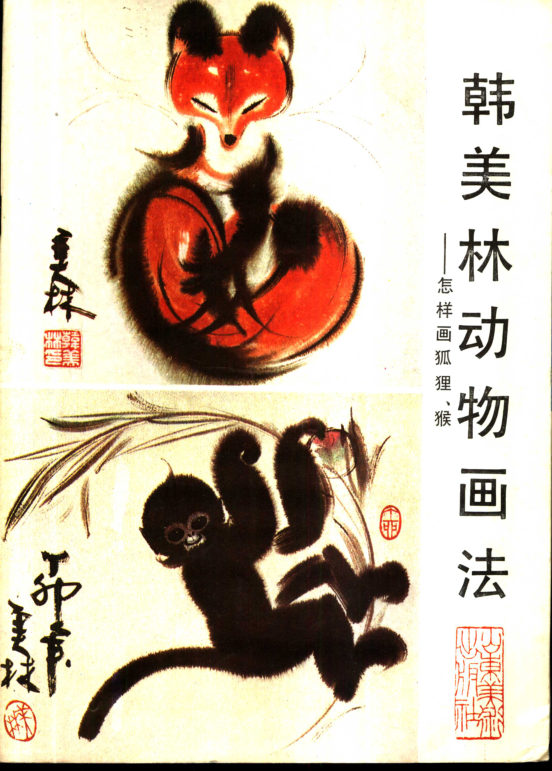 韩美林动物画法
——怎样画狐狸、猴
美林
韩美林印
丁卯年
美林
山东美术出版社